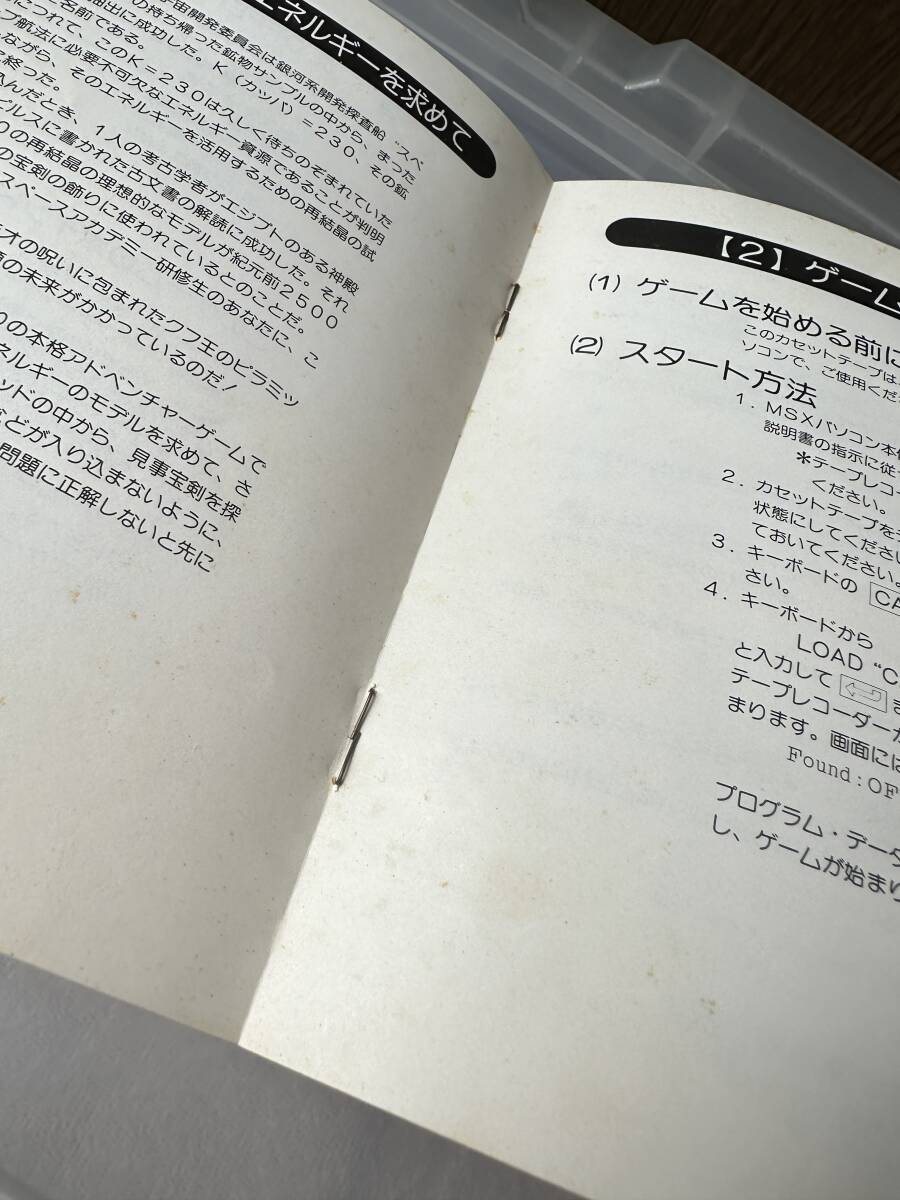 エネルギーを求めて
宙開発委員会は銀河系開発探査船“スペ
の持ち帰った鉱物サンプルの中から、まった
抽出に成功した。K（カッパ）＝230、その鉱
名前である。
につれて、このK＝230は久しく待ちのぞまれていた
プ航法に必要不可欠なエネルギー資源であることが判明
ながら、そのエネルギーを活用するための再結晶の試
終った。
込んだとき、1人の考古学者がエジプトのある神殿
ピルスに書かれた古文書の解読に成功した。それ
の再結晶の理想的なモデルが紀元前2500
の宝剣の飾りに使われているとのことだ。
スペースアカデミー研修生のあなたに、こ
の未来がかかっているのだ！
オの呪いに包まれたクフ王のピラミッ
の本格アドベンチャーゲームで
ネルギーのモデルを求めて、さ
ッドの中から、見事宝剣を探
どが入り込まないように、
問題に正解しないと先に
【2】ゲーム
(1) ゲームを始める前に
このカセットテープは
ソコンで、ご使用くださ
(2) スタート方法
1．MSXパソコン本体
説明書の指示に従っ
＊テープレコー
ください。
2．カセットテープをテ
状態にしてください
ておいてください。
3．キーボードの CA
さい。
4．キーボードから
LOAD “C
と入力して ま
テープレコーダーが
まります。画面には
Found:OF
プログラム・データ
し、ゲームが始まり